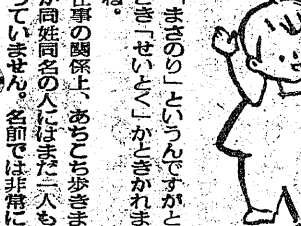 「まさのり」というんですがと
どき「せいとく」かときかれま
ね。
仕事の関係上、あちこち歩きま
が同姓同名の人にはまだ一人も
っていません。名前では非常に